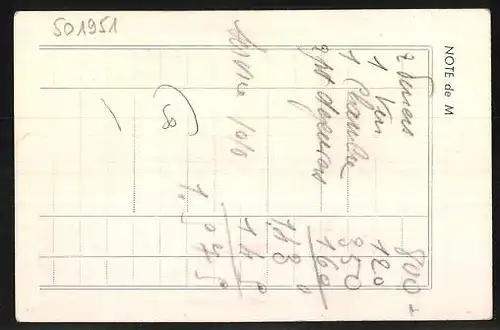 501951
NOTE de M
2 Diners 800
1 Vin 120
1 Chambre 350
2 pt dejeuners 160
1430
Service 10% 145
1.575